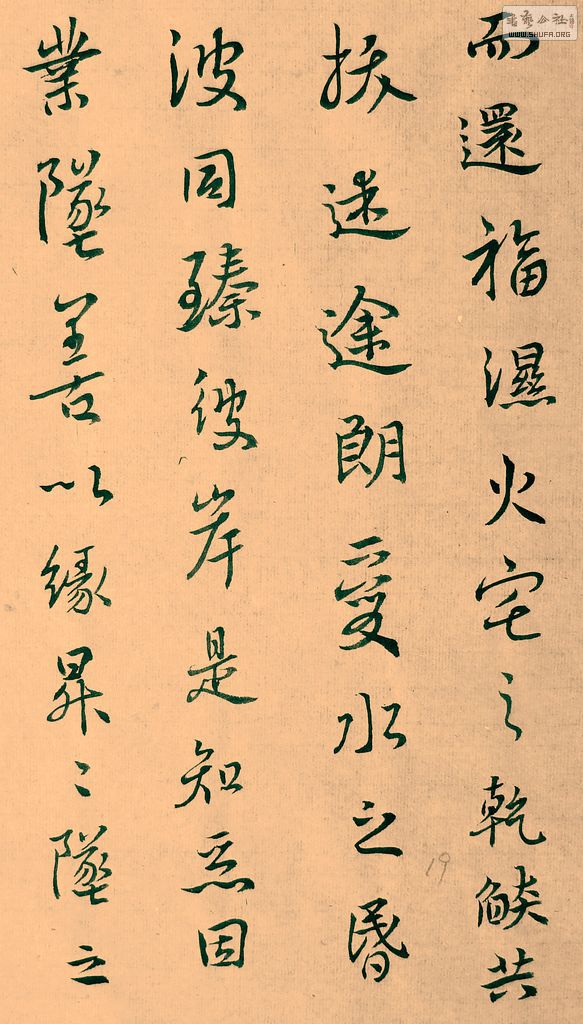 而還福濕火宅之乾燄共
拔迷途朗愛水之昏
波同臻彼岸是知惡因
業墜善以緣昇〻墜之
WWW.SHUFA.ORG